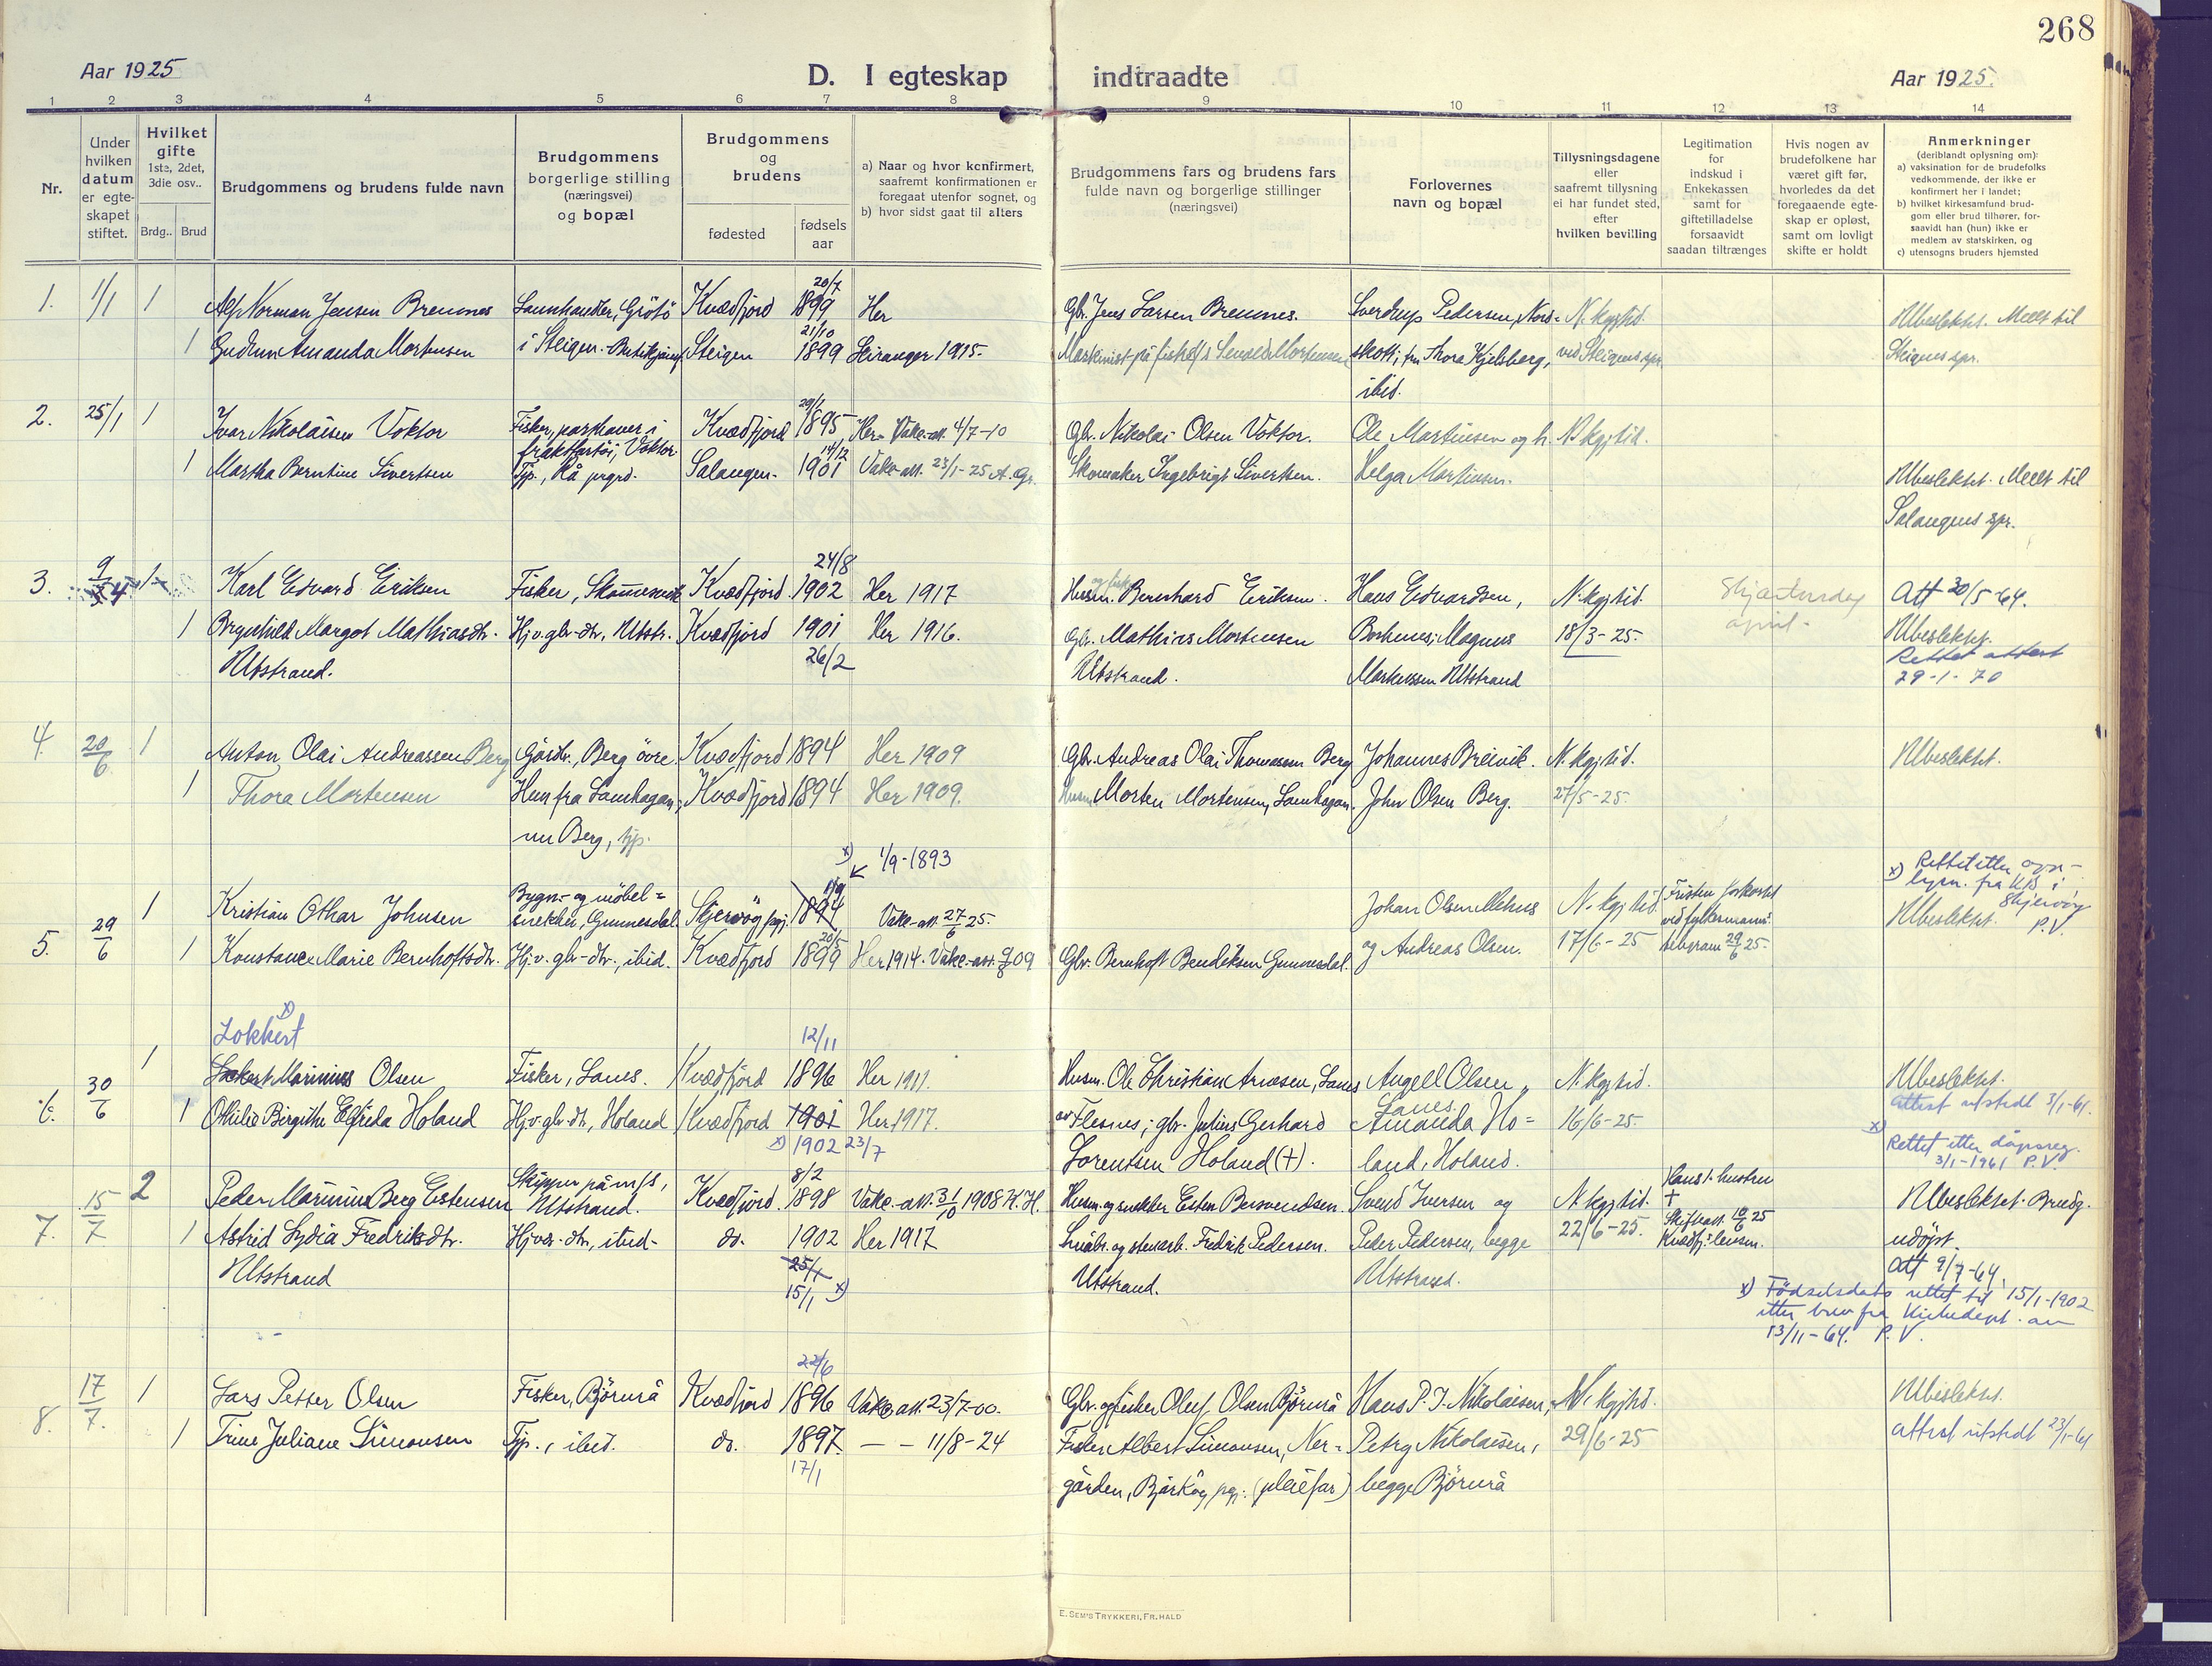 268
Aar 1925
D. I egteskap indtraadte
Aar 1925.
1 2 3 4 5 6 7 8 9 10 11 12 13 14
Nr.
Under hvilken datum er egte-skapet stiftet.
Hvilket gifte
1ste, 2det, 3die osv..
Brdg.. Brud
Brudgommens og brudens fulde navn
Brudgommens borgerlige stilling (næringsvei) og bopæl
Brudgommens og brudens
fødested
fødsels aar
a) Naar og hvor konfirmert, saafremt konfirmationen er foregaat utenfor sognet, og
b) hvor sidst gaat til alters
Brudgommens fars og brudens fars fulde navn og borgerlige stillinger (næringsvei)
Forlovernes navn og bopæl
Tillysningsdagene eller saafremt tillysning ei har fundet sted, efter hvilken bevilling
Legitimation for indskud i Enkekassen samt for giftetilladelse forsaavidt saadan tiltrænges
Hvis nogen av brudefolkene har været gift før, hvorledes da det foregaaende egte-skap er opløst, samt om lovligt skifte er holdt
Anmerkninger
(deriblandt oplysning om):
a) vaksination for de brudefolks vedkommende, der ikke er konfirmert her i landet;
b) hvilket kirkesamfund brud-gom eller brud tilhører, for-saavidt han (hun) ikke er medlem av statskirken, og
c) utensogns bruders hjemsted
20/7
1. 1/1 1 Alf Norman Jensen Bremnes Kvædfjord 1899 Her Gbr. Jens Larsen Bremnes. Sverdrup Pedersen, Nord= N. kgjtid. Ubeslektet. Meldt til
21/10
1 Gudrun Amanda Mortensen i Steigen. Steigen 1899 Leiranger 1915. skott; fru Thora Kjelsberg, ved Steigens spr. Steigens spr.
ibid.
2. 25/1 1 Ivar Nikolaisen Voktor Fisker, parthaver i Kvædfjord 1895 Her Vakc.-att. 4/7-10 Gbr. Nikolai Olsen Voktor. Ole Martinsen og h. N. kgjtid.
fraktfartøi, Voktor 14/12
1 Martha Berntine Sivertsen Tjp., Rå prgrd. Salangen. 1901 Vakc-att. 23/1-25 Skomaker Ingebrigt Sivertsen. Helga Martinsen. Ubeslektet. Meldt til
Salangens spr.
24/8
3. 9/4 1 Karl Edvard Eriksen Fisker, Kvædfjord 1902 Her 1917 Husm. Bernhard Eriksen. Hans Edvardsen, N. kgjtid. Skjærtorsdag Att 30/5-64.
1 Brynhild Margot Mathiasdtr. Hj.v. gbr-dtr, Utstr. Kvædfjord 1901 Her 1916. Gbr. Mathias Mortensen Magnus 18/3-25. april. Ubeslektet.
Utstrand. 26/2 Utstrand. Utstrand Rettet attest
29-1-70
4. 20/6 1 Anton Olai Andreassen Berg Gårdbr., Berg övre. Kvædfjord 1894 Her 1909 Gbr. Andreas Olai Thomassen Berg Johannes Breivik. N. kgjtid. Ubeslektet.
1 Thora Mortensen Hun fra Kvædfjord 1894 Her 1909. Husm. Morten Mortensen, John Olsen Berg. 27/5-25.
nu Berg, tjp.
x) 1/9-1893
x) Rettet etter opp-
lysn. fra K/B i
Skjervøy
P.V.
1 Kristian Othar Johnsen Bygn.- og möbel= 1/9 1894 Vakc.-att. 27/6 25. Johan Olsen Mehus N. kgjtid. Ubeslektet.
snekker, Gunnesdal. Skjervöy pgj.
5. 29/6 20/5
1 Konstance Marie Bernhoftsdtr. Hj.v. gbr-dtr., ibid. Kvædfjord 1899 Her 1914. Gbr. Bernhoft Bendiksen Gunnesdal. og Andreas Olsen. 17/6-25 telegram 29/6 25.
x)
Lokkert 12/11
1 Marinius Olsen Fisker, Lanes. Kvædfjord 1896 Her 1911. Husm. Ole Christian Arnesen, Lanes Angell Olsen, N. kgjtid. Ubeslektet.
Lanes.
6. 30/6 attest utstedt 3/1-61.
1 Othilie Birgithe Elfrida Holand Hj.v. gbr-dtr, Holand Kvædfjord 1901 Her 1917. av Flesnes; gbr. Julius Gerhard Amanda Ho= 16/6-25.
x) 1902 23/7 Lorentsen Holand (+). land, Holand. x) Rettet etter dåpsreg.
3/1-1961 P.V.
8/2
7. 15/7 2 Peder Marinius Berg Estensen Skipper på m/s, Utstrand. Kvædfjord. 1898 Vakc.-att. 31/10 1908 K.H. Husm. og snekker Esten Svend Iversen og N. kgjtid. Hans 1. hustru + Ubeslektet. Brudg.
1 Astrid Lydia Fredriksdtr. do. 1902 Her 1917 Småbr. og Fredrik Pedersen. Peder Pedersen, begge 22/6-25. Skifteatt. 10/6 25 udöpt.
Utstrand 25/1 Utstrand. Utstrand. Att 9/7-64.
15/1 x) x) Födselsdato rettet til 15/1-1902
etter brev fra Kirkedept. av
13/11-64. P.V.
22/6
8. 17/7. 1 Lars Petter Olsen Fisker, Björnrå Kvædfjord 1896 Vakc att. 23/7-00. Gbr. og fisker Oluf Olsen Björnrå Hans P. J. Nikolaisen, N. kgjtid. Ubeslektet.
1 Trine Juliane Simonsen Tjp., ibid. do. 1897. — — 11/8-24 Fisker Albert Simonsen, Ner= Petry Nikolaisen, 29/6-25 attest utstedt 23/1-61
17/1 gården, Bjarköy pgj. (pleiefar) begge Björnrå
E. SEM'S TRYKKERI, FR.HALD